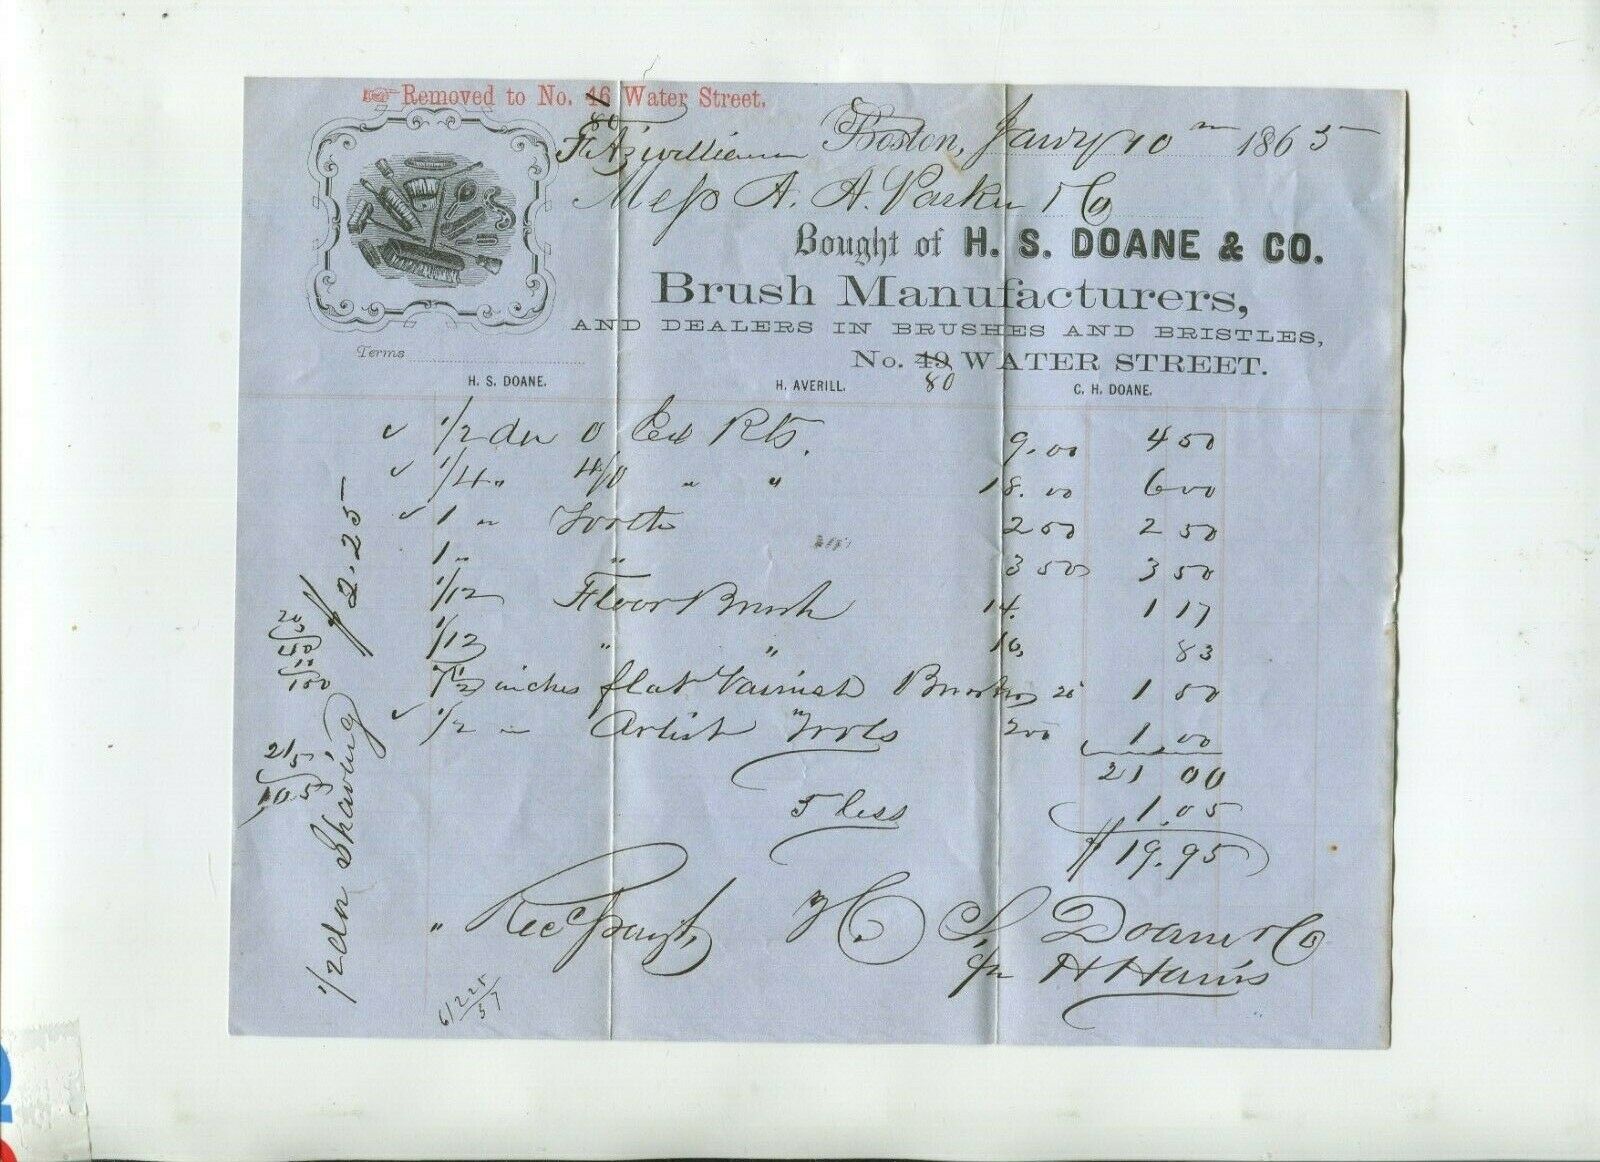 Removed to No. 46 Water Street.
80
Fitzwilliam Boston, Jany 10 1865
Mess A. A. Parker & Co
Bought of H. S. DOANE & CO.
Brush Manufacturers,
AND DEALERS IN BRUSHES AND BRISTLES,
Terms
No. 49 WATER STREET.
80
H. S. DOANE. H. AVERILL. C. H. DOANE.
1/2 dz 0 Rts. 9.00 4 50
1/4 " 4/0 " " 18.00 6 00
1 " Tooth 2 50 2 50
1 " " 3 50 3 50
1/12 Floor Brush 14. 1 17
1/12 " " 10, 83
7 1/2 inches flat Varnish Brushes 20 1 50
1/2 " Artist Tools 2 00 1 00
21 00
5 less 1.05
$19.95
" Rec Payt. H. S. Doane & Co
pr H Harris
1/2 dz Shaving $2.25
20
40
100
21
105
6/225
37